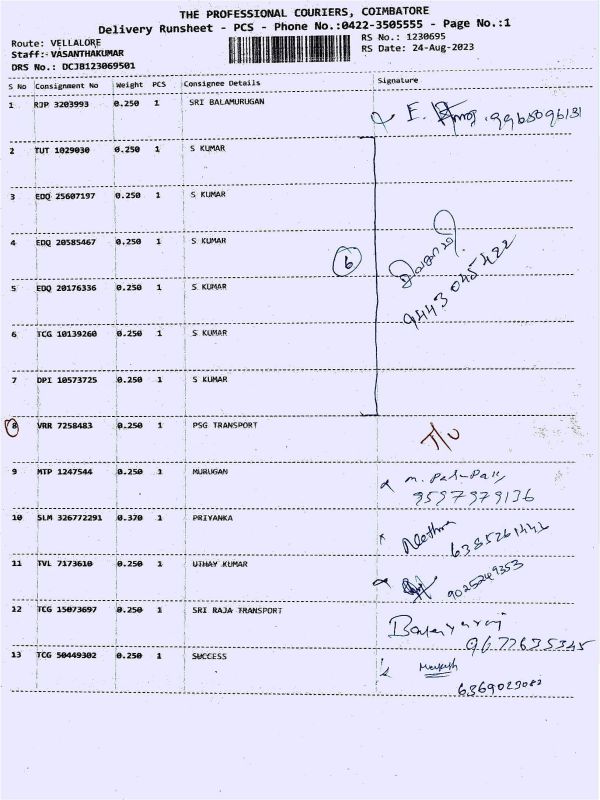 THE PROFESSIONAL COURIERS, COIMBATORE
Delivery Runsheet - PCS - Phone No.:0422-3505555 - Page No.:1
Route: VELLALORE
RS No.: 1230695
Staff: VASANTHAKUMAR
RS Date: 24-Aug-2023
DRS No.: DCJB123069501
S No Consignment No Weight PCS Consignee Details Signature
1 RJP 3203993 0.250 1 SRI BALAMURUGAN E.
2 TUT 1029030 0.250 1 S KUMAR
3 EDQ 25607197 0.250 1 S KUMAR
4 EDQ 20585467 0.250 1 S KUMAR 6
9443045422
5 EDQ 20176336 0.250 1 S KUMAR
6 TCG 10139260 0.250 1 S KUMAR
7 DPI 10573725 0.250 1 S KUMAR
8 VRR 7258483 0.250 1 PSG TRANSPORT T/U
9 MTP 1247544 0.250 1 MURUGAN
9597979136
10 SLM 326772291 0.370 1 PRIYANKA
11 TVL 7173610 0.250 1 UTHAY KUMAR 9025249353
12 TCG 15073697 0.250 1 SRI RAJA TRANSPORT
9677635345
13 TCG 50449302 0.250 1 SUCCESS